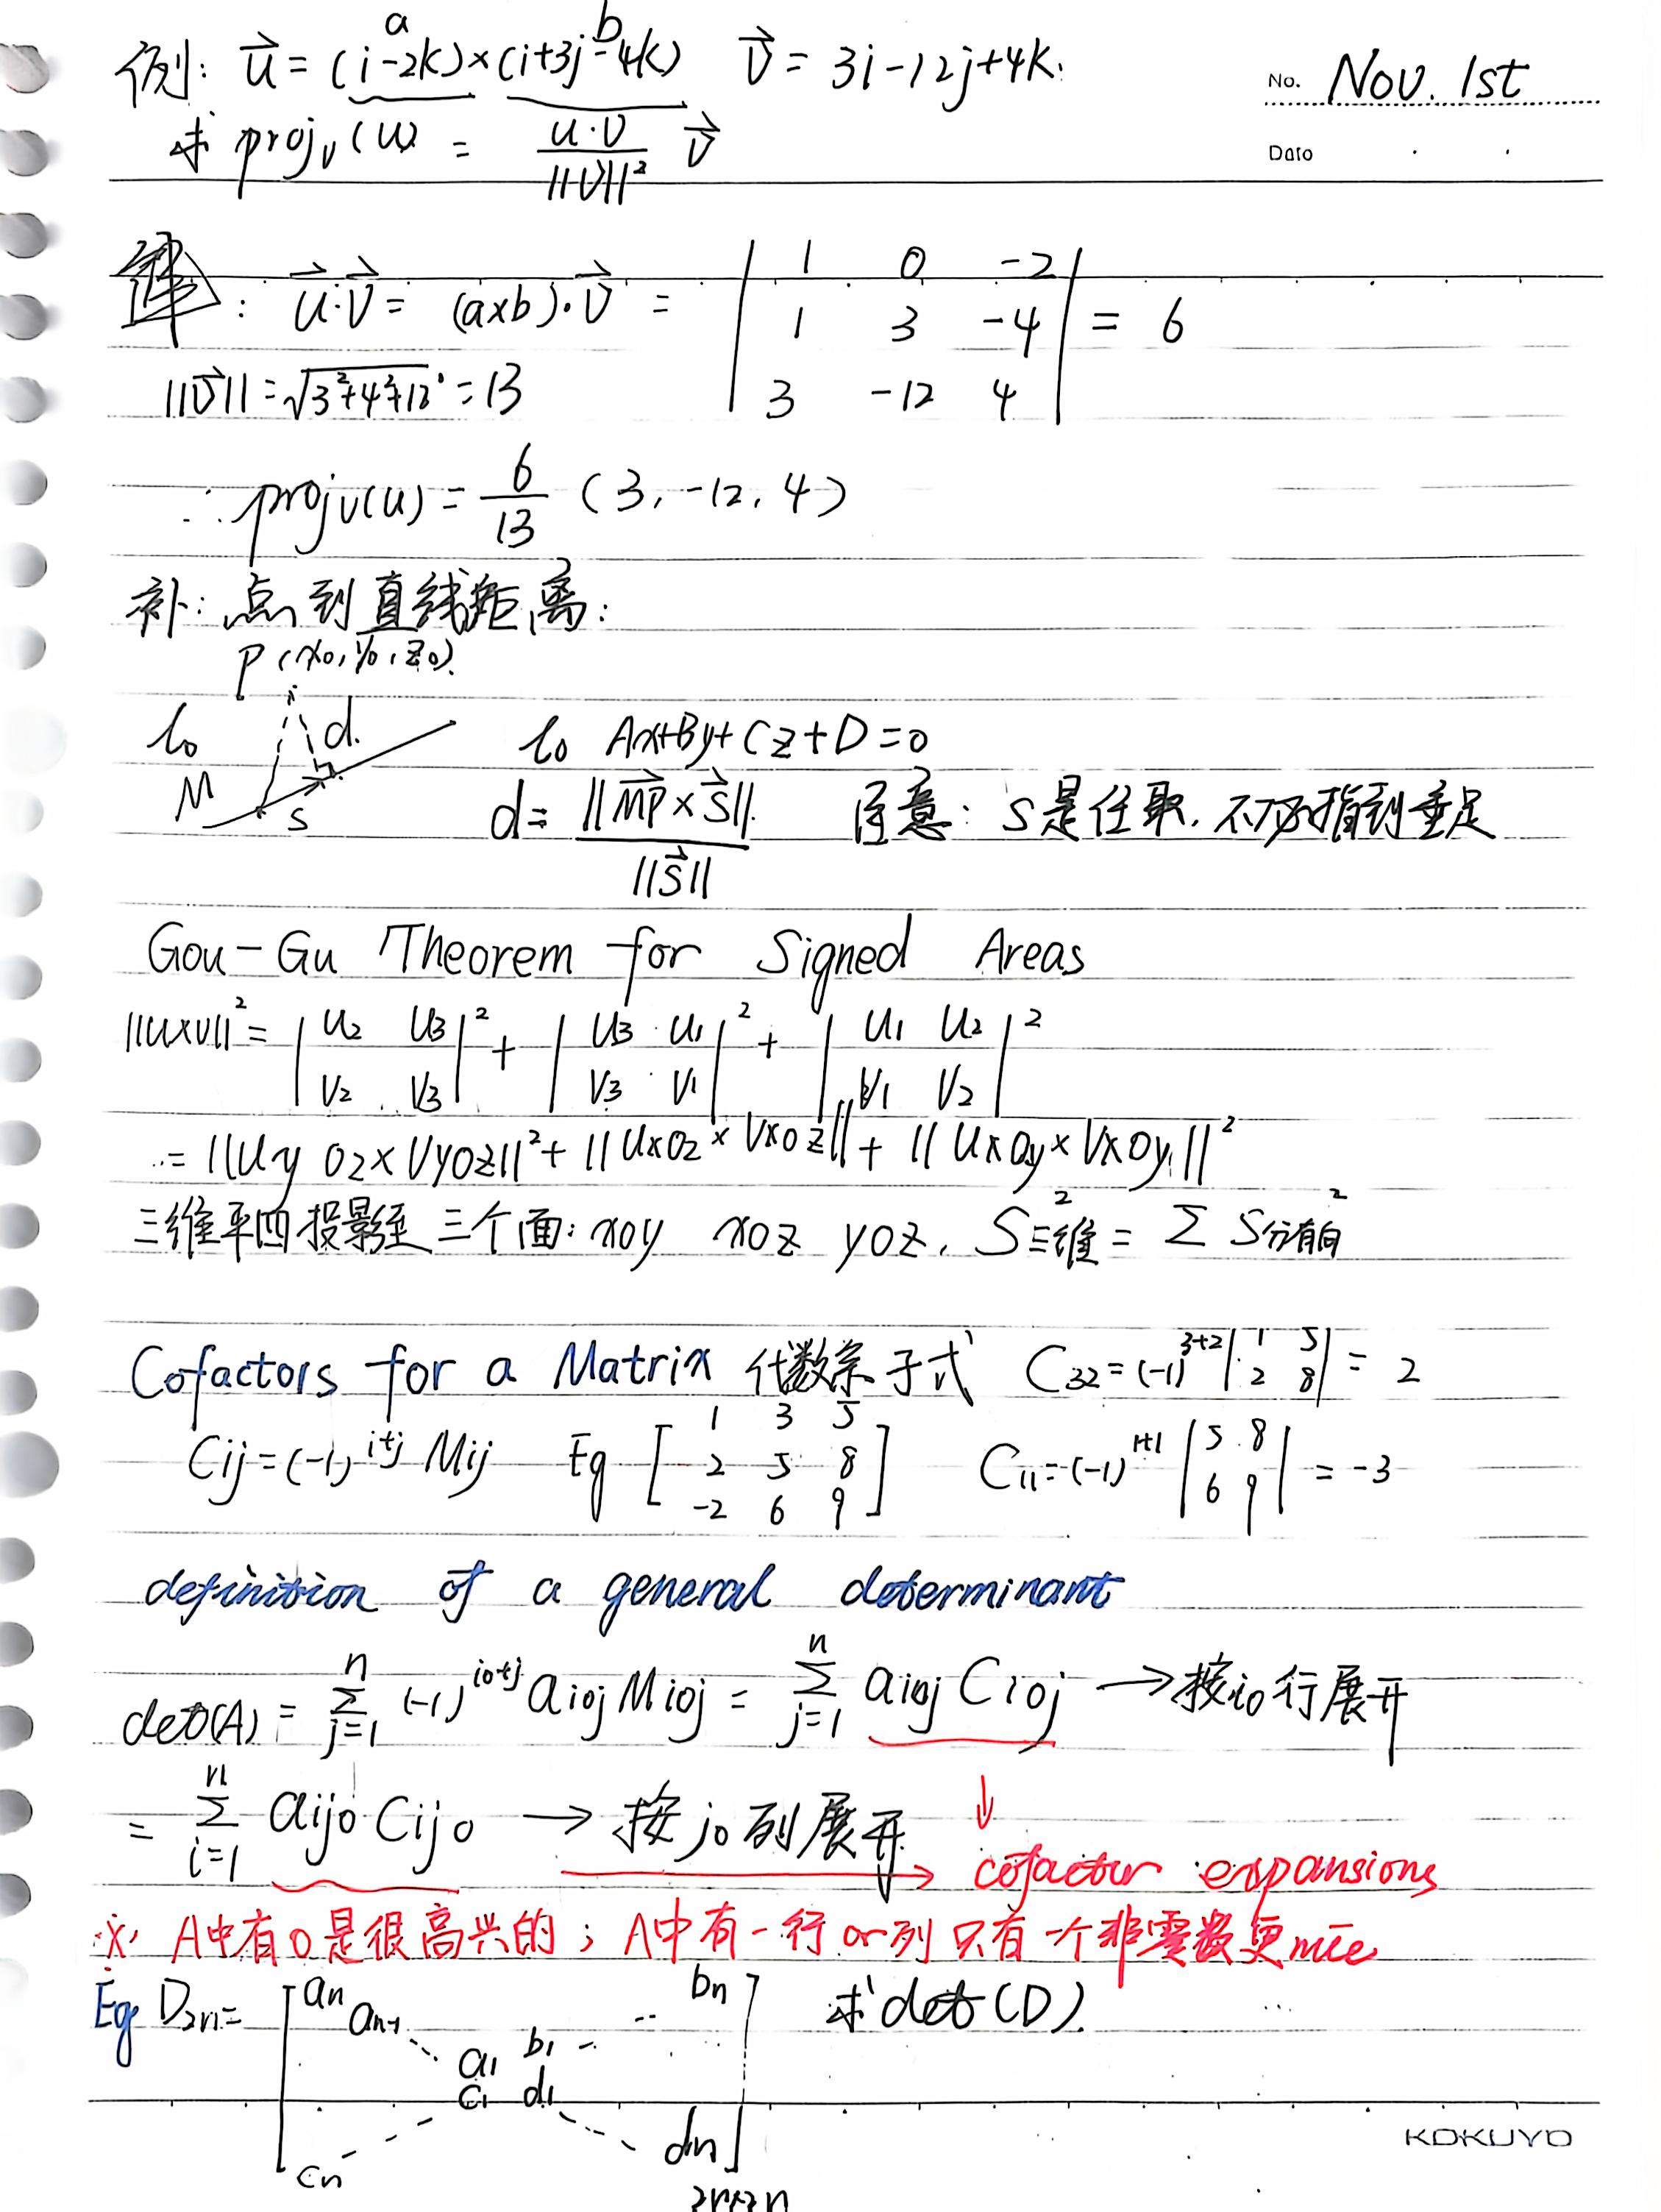 No. Nov. 1st
Date
例: u⃗ = (i-2k)×(i+3j-4k) v⃗ = 3i-12j+4k.
a b
求 proj_v(u) = (u·v)/||v||² v⃗
解: u⃗·v⃗ = (a×b)·v⃗ = | 1 0 -2 |
| 1 3 -4 | = 6
| 3 -12 4 |
||v⃗|| = √(3²+4²+12²) = 13
∴ proj_v(u) = 6/13 (3, -12, 4)
补: 点到直线距离:
P(x₀, y₀, z₀)
l₀ d. l₀ Ax+By+Cz+D=0
M S d = ||MP⃗ × S⃗|| / ||S⃗|| 注意: S是任取, 不必指到垂足
Gou-Gu Theorem for Signed Areas
||u×v||² = | u₂ u₃ |² + | u₃ u₁ |² + | u₁ u₂ |²
| v₂ v₃ | | v₃ v₁ | | v₁ v₂ |
= ||Uyoz×Vyoz||² + ||Uxoz×Vxoz|| + ||Uxoy×Vxoy||²
三维平四投影至三个面: xoy xoz yoz, S²三维 = Σ S²分有向
Cofactors for a Matrix 代数余子式 C₃₂ = (-1)³⁺² | 1 5 | = 2
| 2 8 |
Cij = (-1)^(i+j) Mij Eg [ 1 3 5 ] C₁₁ = (-1)¹⁺¹ | 5 8 | = -3
[ 2 5 8 ] | 6 9 |
[ -2 6 9 ]
definition of a general determinant
det(A) = Σ_{j=1}^{n} (-1)^{i₀+j} a_{i₀j} M_{i₀j} = Σ_{j=1}^{n} a_{i₀j} C_{i₀j} → 按i₀行展开
= Σ_{i=1}^{n} a_{ij₀} C_{ij₀} → 按j₀列展开 → ↓ cofactor expansions
※ A中有0是很高兴的; A中有一行or列只有一个非零数更nice
Eg D₂ₙ = [ aₙ bₙ ] 求det(D)
aₙ₋₁
a₁ b₁
c₁ d₁
cₙ dₙ
2n×2n
KOKUYO